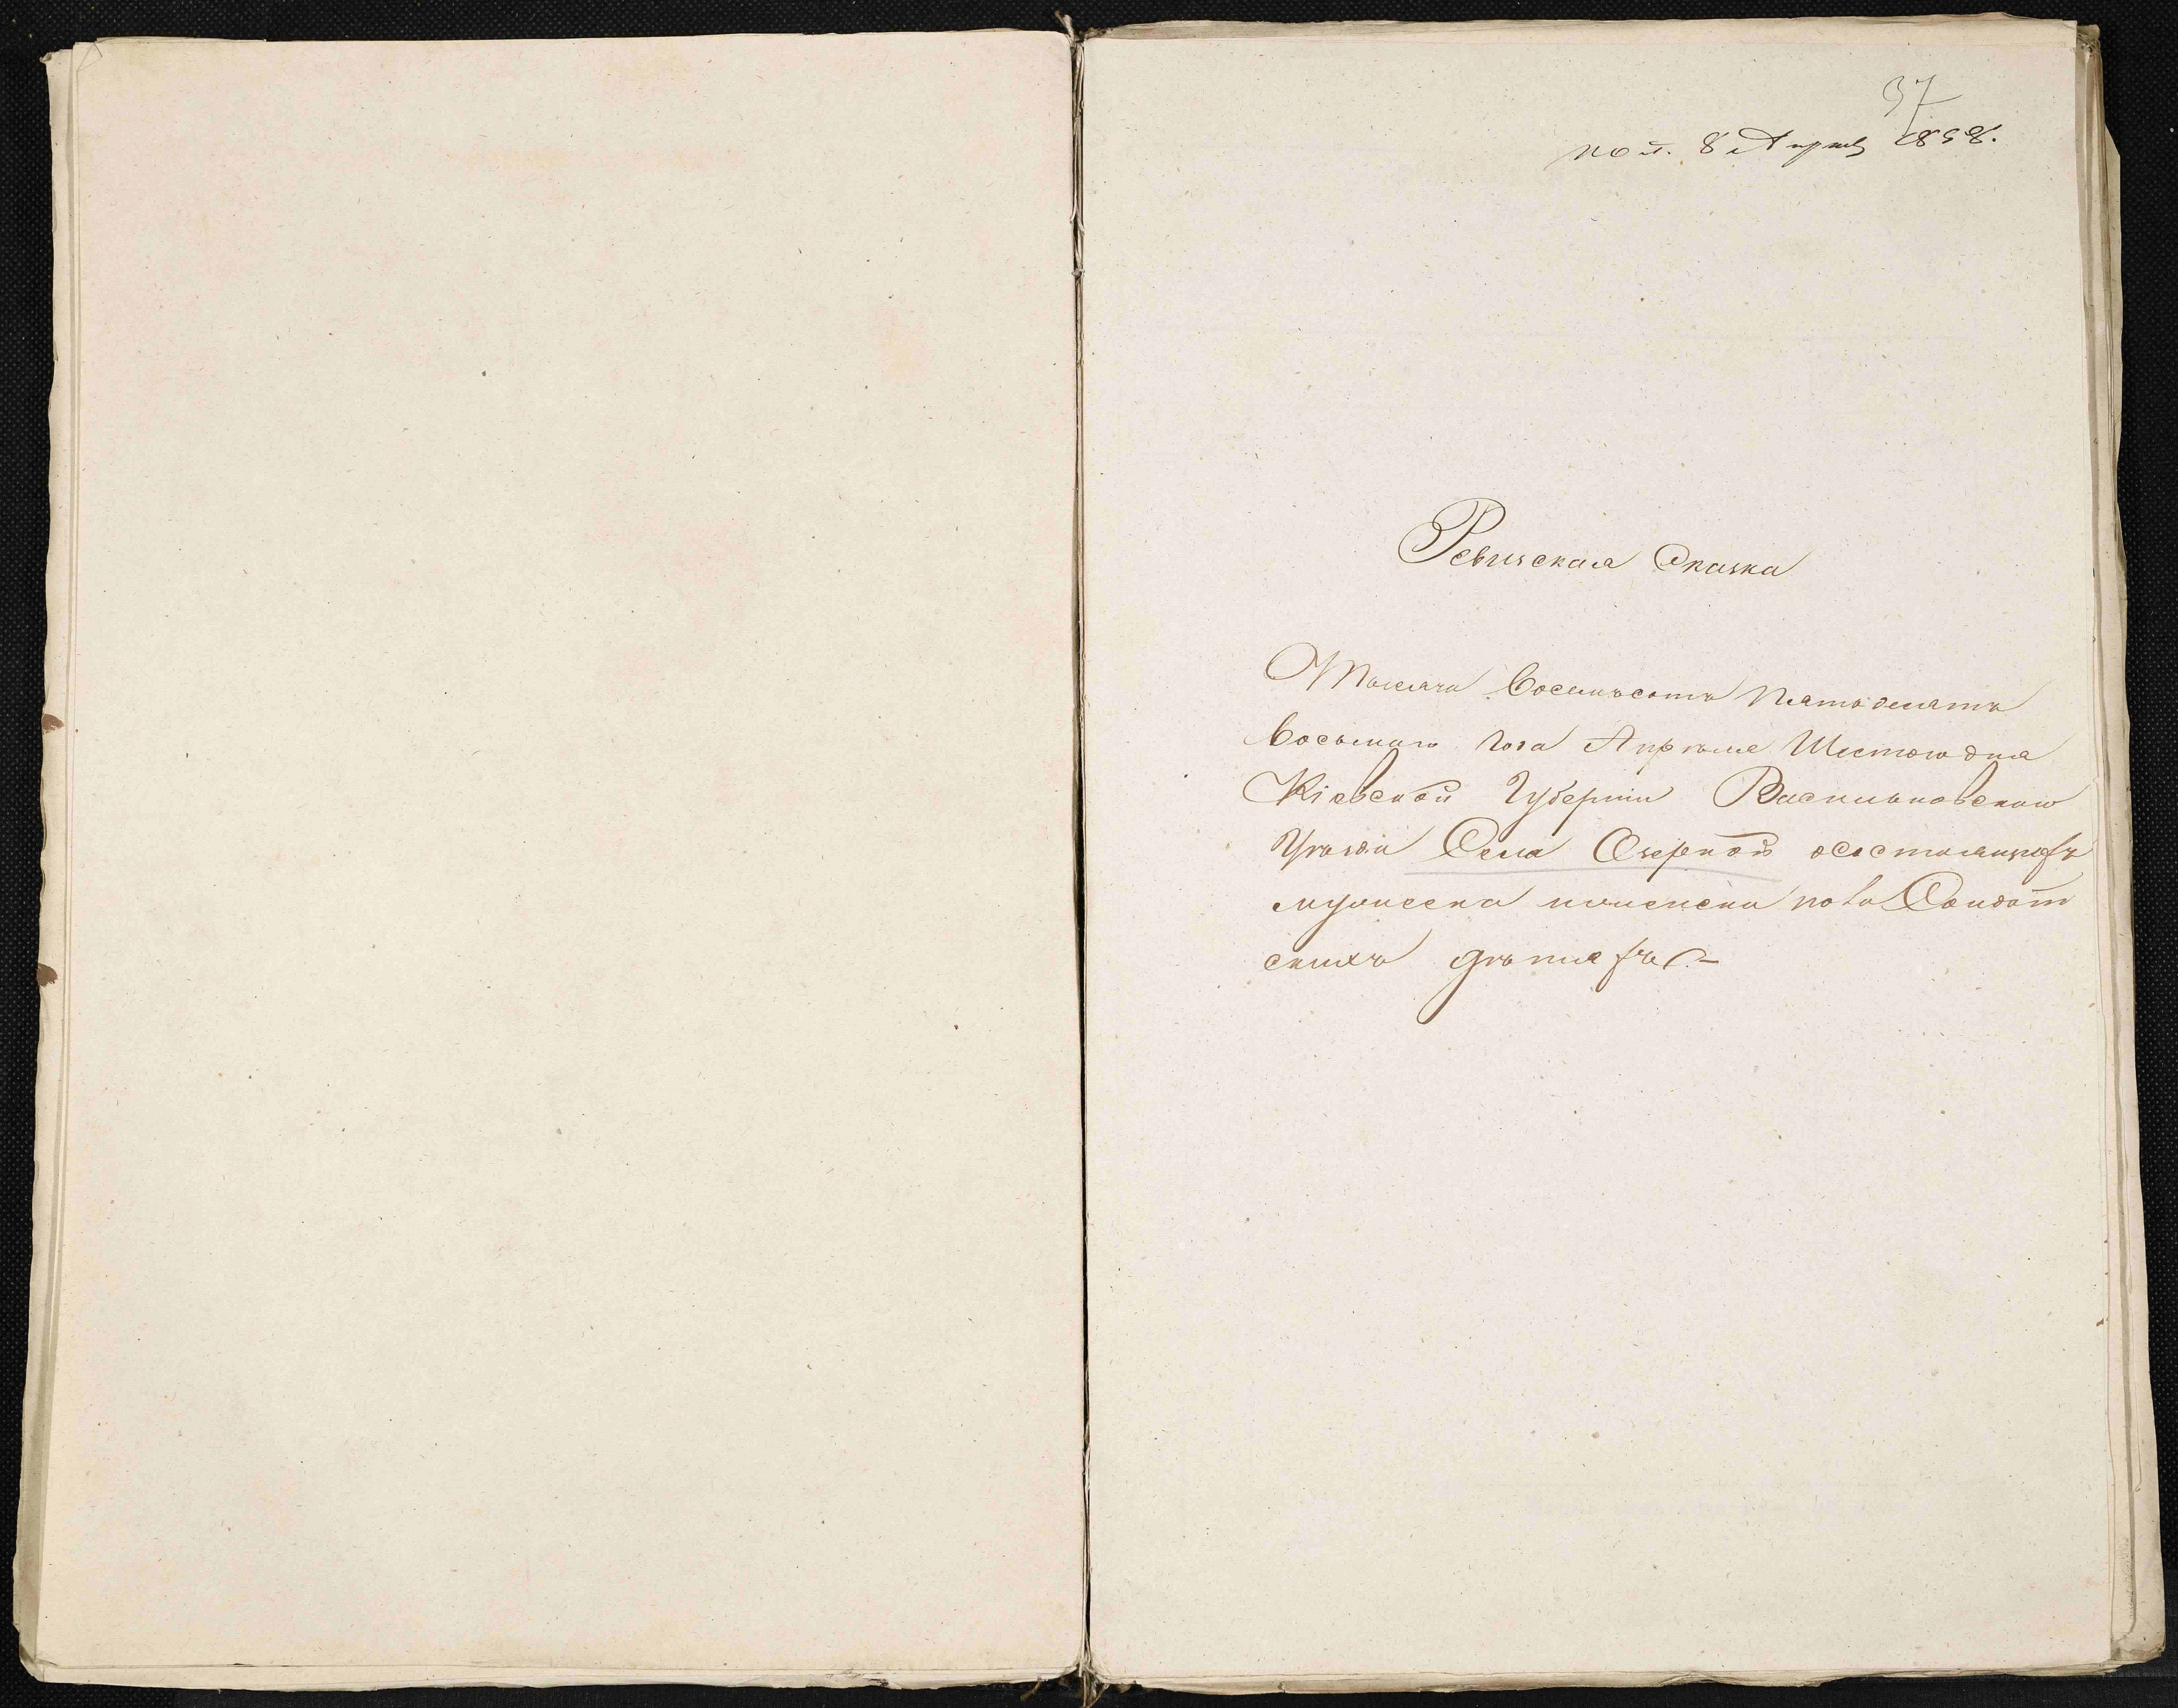 37
пол. 8 Апрель 1858.
Ревизская Сказка
Тысяча Восемьсотъ Пятьдесятъ
Восьмаго Года Апреля Шестого дня
Кіевской Губерніи Васильковского
Уѣзда Села Озерной о состоящихъ
мужеска пола Солдат
скихъ дѣтяхъ.